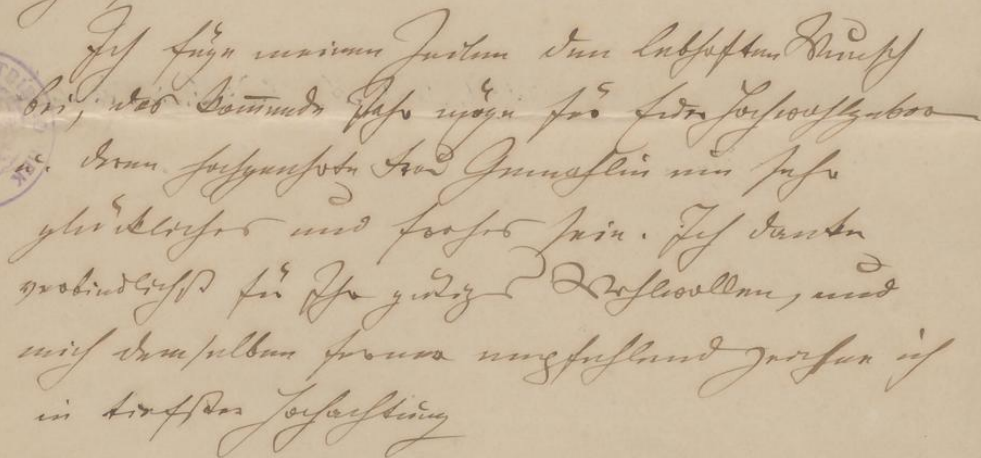 Ich füge meinen Zeilen den lebhaften Wunsch
bei, das kommende Jahr möge für Euer Hochwohlgeboren
u. deren hochgeehrte Frau Gemahlin ein sehr
glückliches und frohes sein. Ich danke
verbindlichst für Ihr gütiges Wohlwollen, und
mich demselben ferner empfehlend zeichne ich
in tiefster Hochachtung